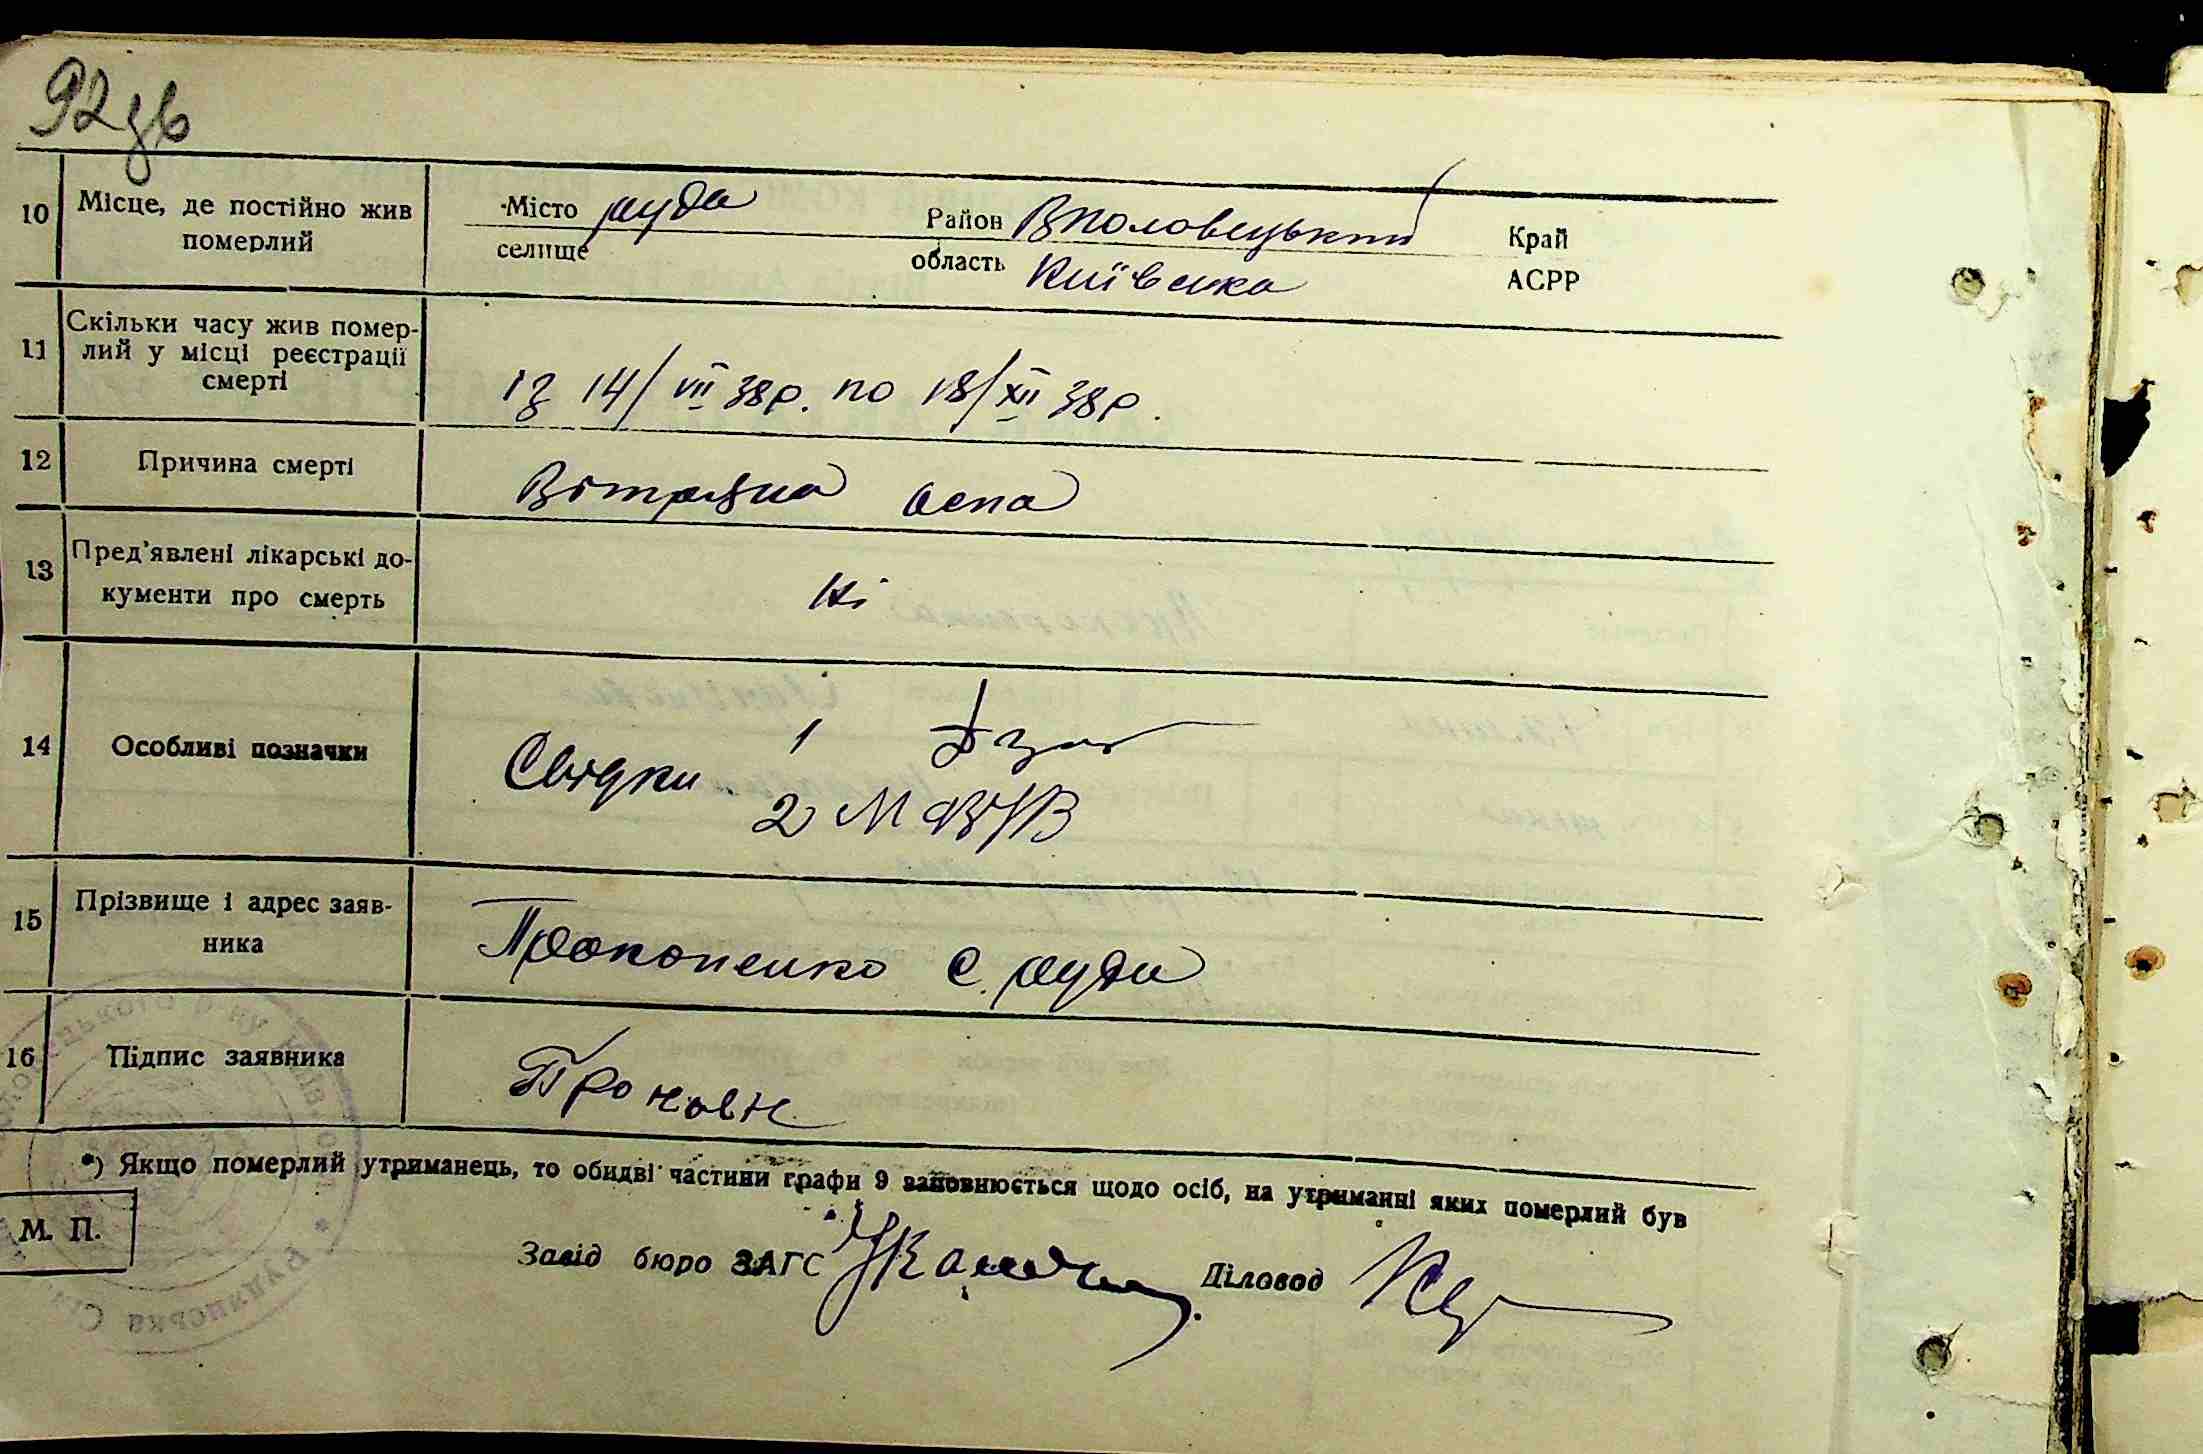 92 зв
10 Місце, де постійно жив померлий
Місто руда Район Вполовецький Край
селище область Київська АСРР
11 Скільки часу жив помер-
лий у місці реєстрації
смерті
із 14/VII 38р. по 18/XII 38р.
12 Причина смерті Вітряна оспа
13 Пред'явлені лікарські до-
кументи про смерть
Ні
14 Особливі позначки
Свідки 1
2
15 Прізвище і адрес заяв-
ника
Прокопенко с. руда
16 Підпис заявника
*) Якщо померлий утриманець, то обидві частини графи 9 заповнюється щодо осіб, на утриманні яких померлий був
М. П.
Завід бюро ЗАГС Діловод